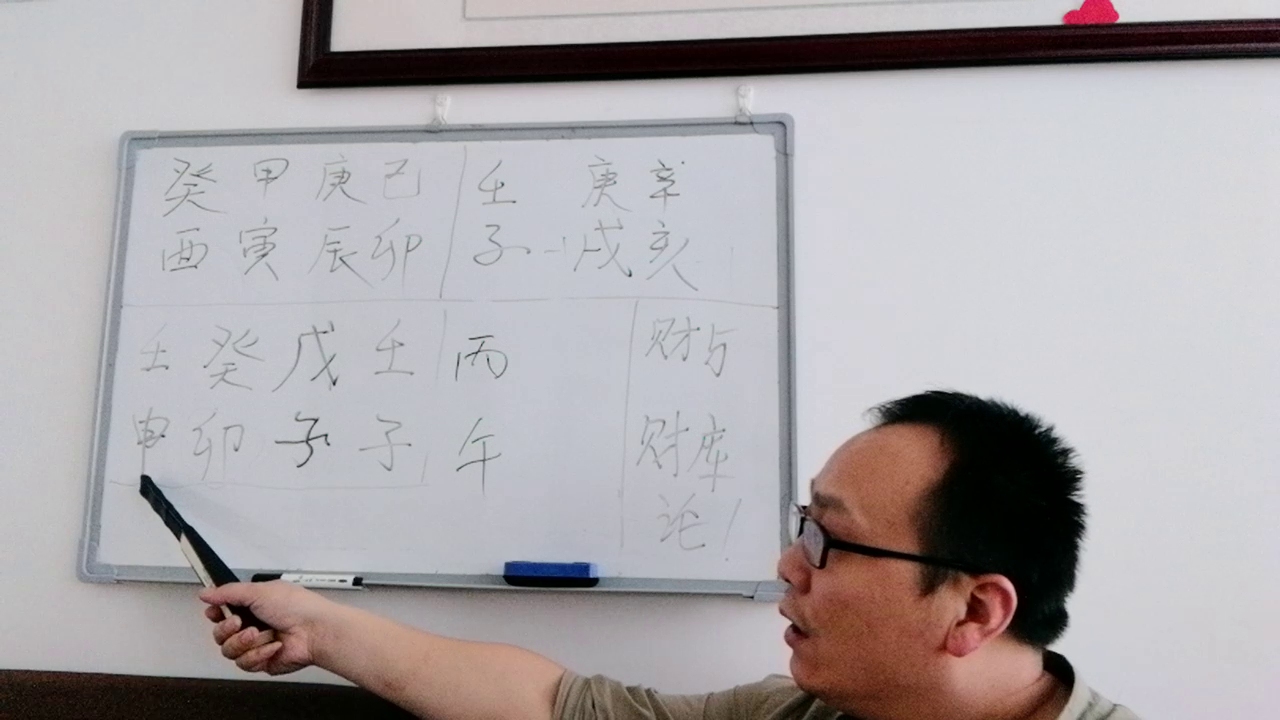 癸 甲 庚 己 壬 庚 辛
酉 寅 辰 卯 子 戌 亥
壬 癸 戊 壬 丙 财与
申 卯 子 子 午 财库
论!